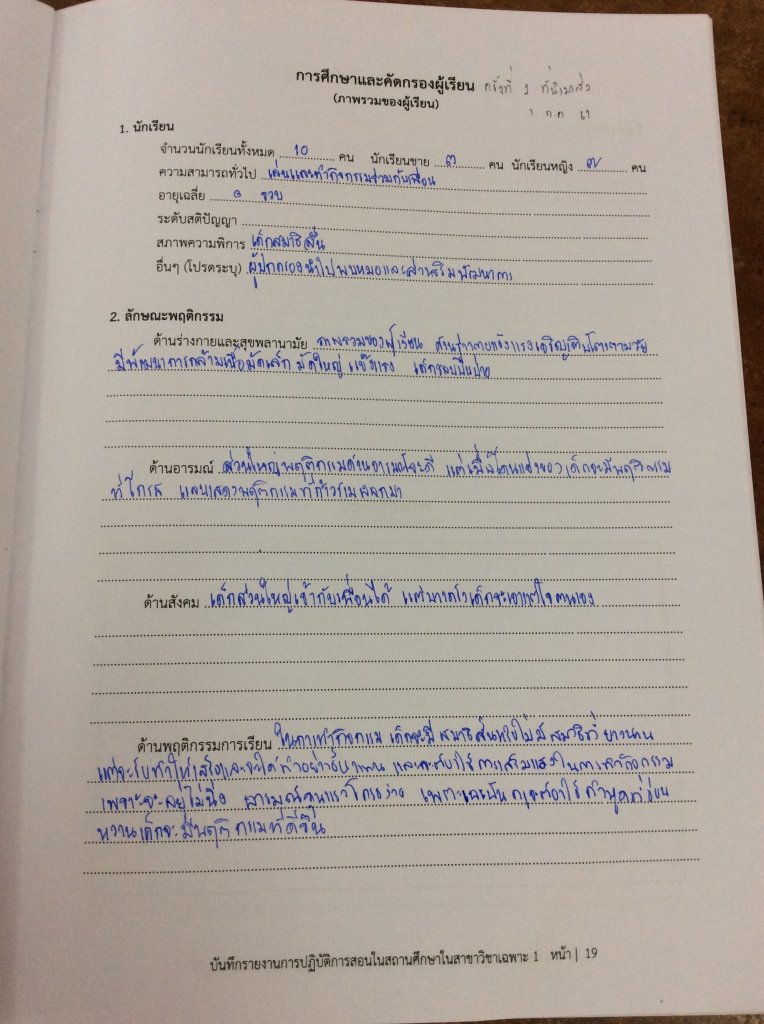 การศึกษาและคัดกรองผู้เรียน ครั้งที่ 1
(ภาพรวมของผู้เรียน)
1. นักเรียน
จำนวนนักเรียนทั้งหมด 10 คน นักเรียนชาย ๓ คน นักเรียนหญิง ๗ คน
ความสามารถทั่วไป เล่นและทำกิจกรรมร่วมกับเพื่อน
อายุเฉลี่ย ขวบ
ระดับสติปัญญา
สภาพความพิการ เด็กสมาธิสั้น
อื่นๆ (โปรดระบุ) ผู้ปกครองนำไปพบหมอและส่งเสริมพัฒนาการ
2. ลักษณะพฤติกรรม
ด้านร่างกายและสุขพลานามัย ภาพรวมของผู้เรียน ด้านร่างกายแข็งแรงเจริญเติบโตตามวัย
มีพัฒนาการกล้ามเนื้อมัดเล็ก มัดใหญ่ แข็งแรง เด็กชอบปีนป่าย
ด้านอารมณ์ ส่วนใหญ่พฤติกรรมด้านอารมณ์จะดี แต่เมื่อโดนแย่งของเด็กจะมีพฤติกรรม
ที่โกรธ และแสดงพฤติกรรมที่ก้าวร้าวออกมา
ด้านสังคม เด็กส่วนใหญ่เข้ากับเพื่อนได้ แต่บางครั้งเด็กจะเอาแต่ใจตนเอง
ด้านพฤติกรรมการเรียน ในการทำกิจกรรม เด็กจะมีสมาธิสั้น ไม่มีสมาธิ ยาวนาน
แต่จะรีบทำให้เสร็จและจะได้ทำอย่างอื่น และจะต้องใช้การเสริมแรงในการทำกิจกรรม
เพราะจะอยู่ไม่นิ่ง อารมณ์ โกรธง่าย เพราะฉะนั้น ครูจะต้องใช้คำพูดที่อ่อน
หวานเด็กจะมีพฤติกรรมที่ดีขึ้น
บันทึกรายงานการปฏิบัติการสอนในสถานศึกษาในสาขาวิชาเฉพาะ 1 หน้า | 19